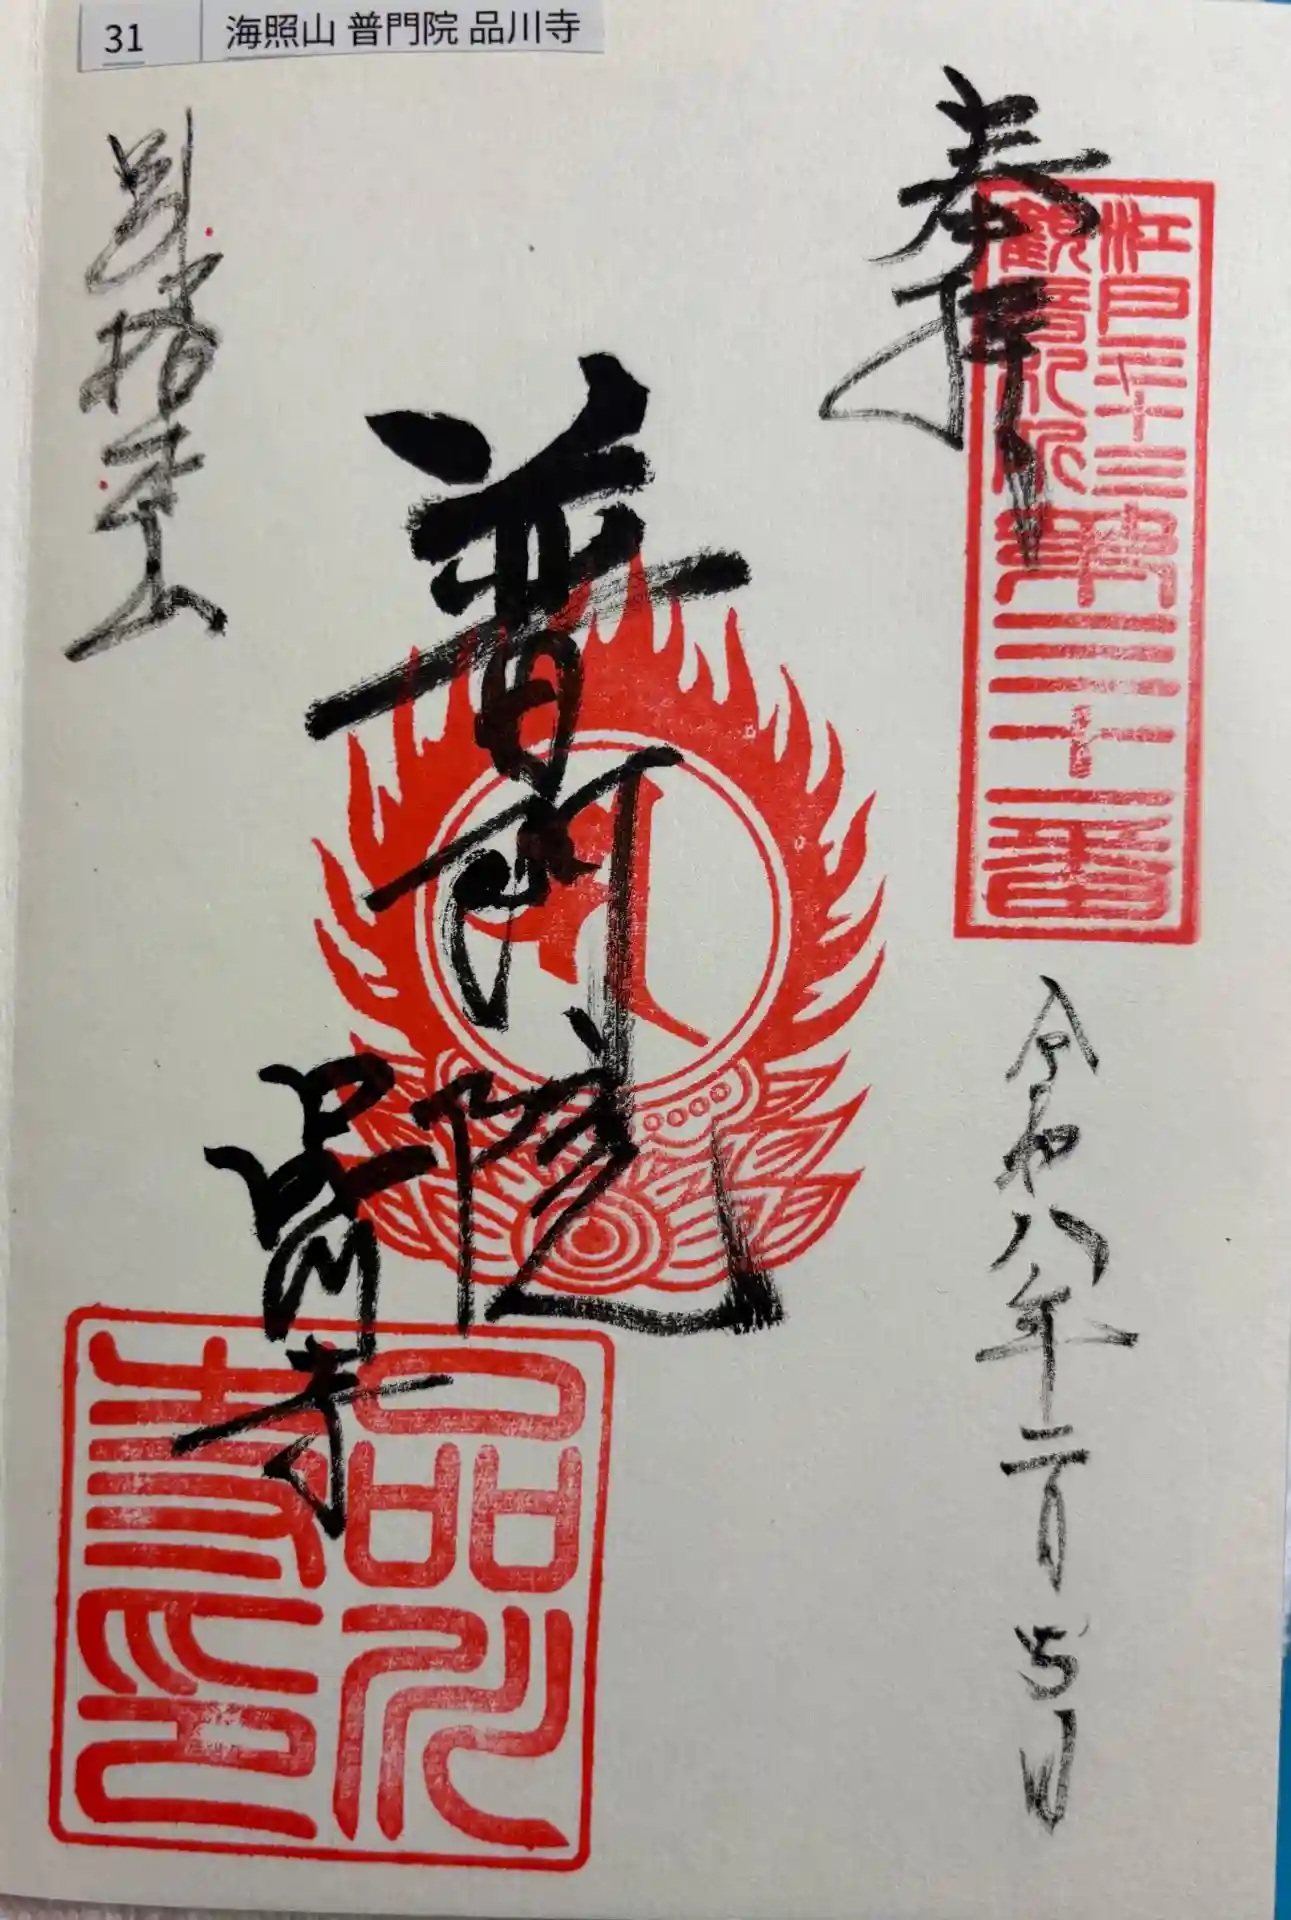 31 海照山 普門院 品川寺
奉拝
江戸三十三
観音札所
第三十一番
令和八年二月5日
普門院
品川寺
別格本山
品川
寺印